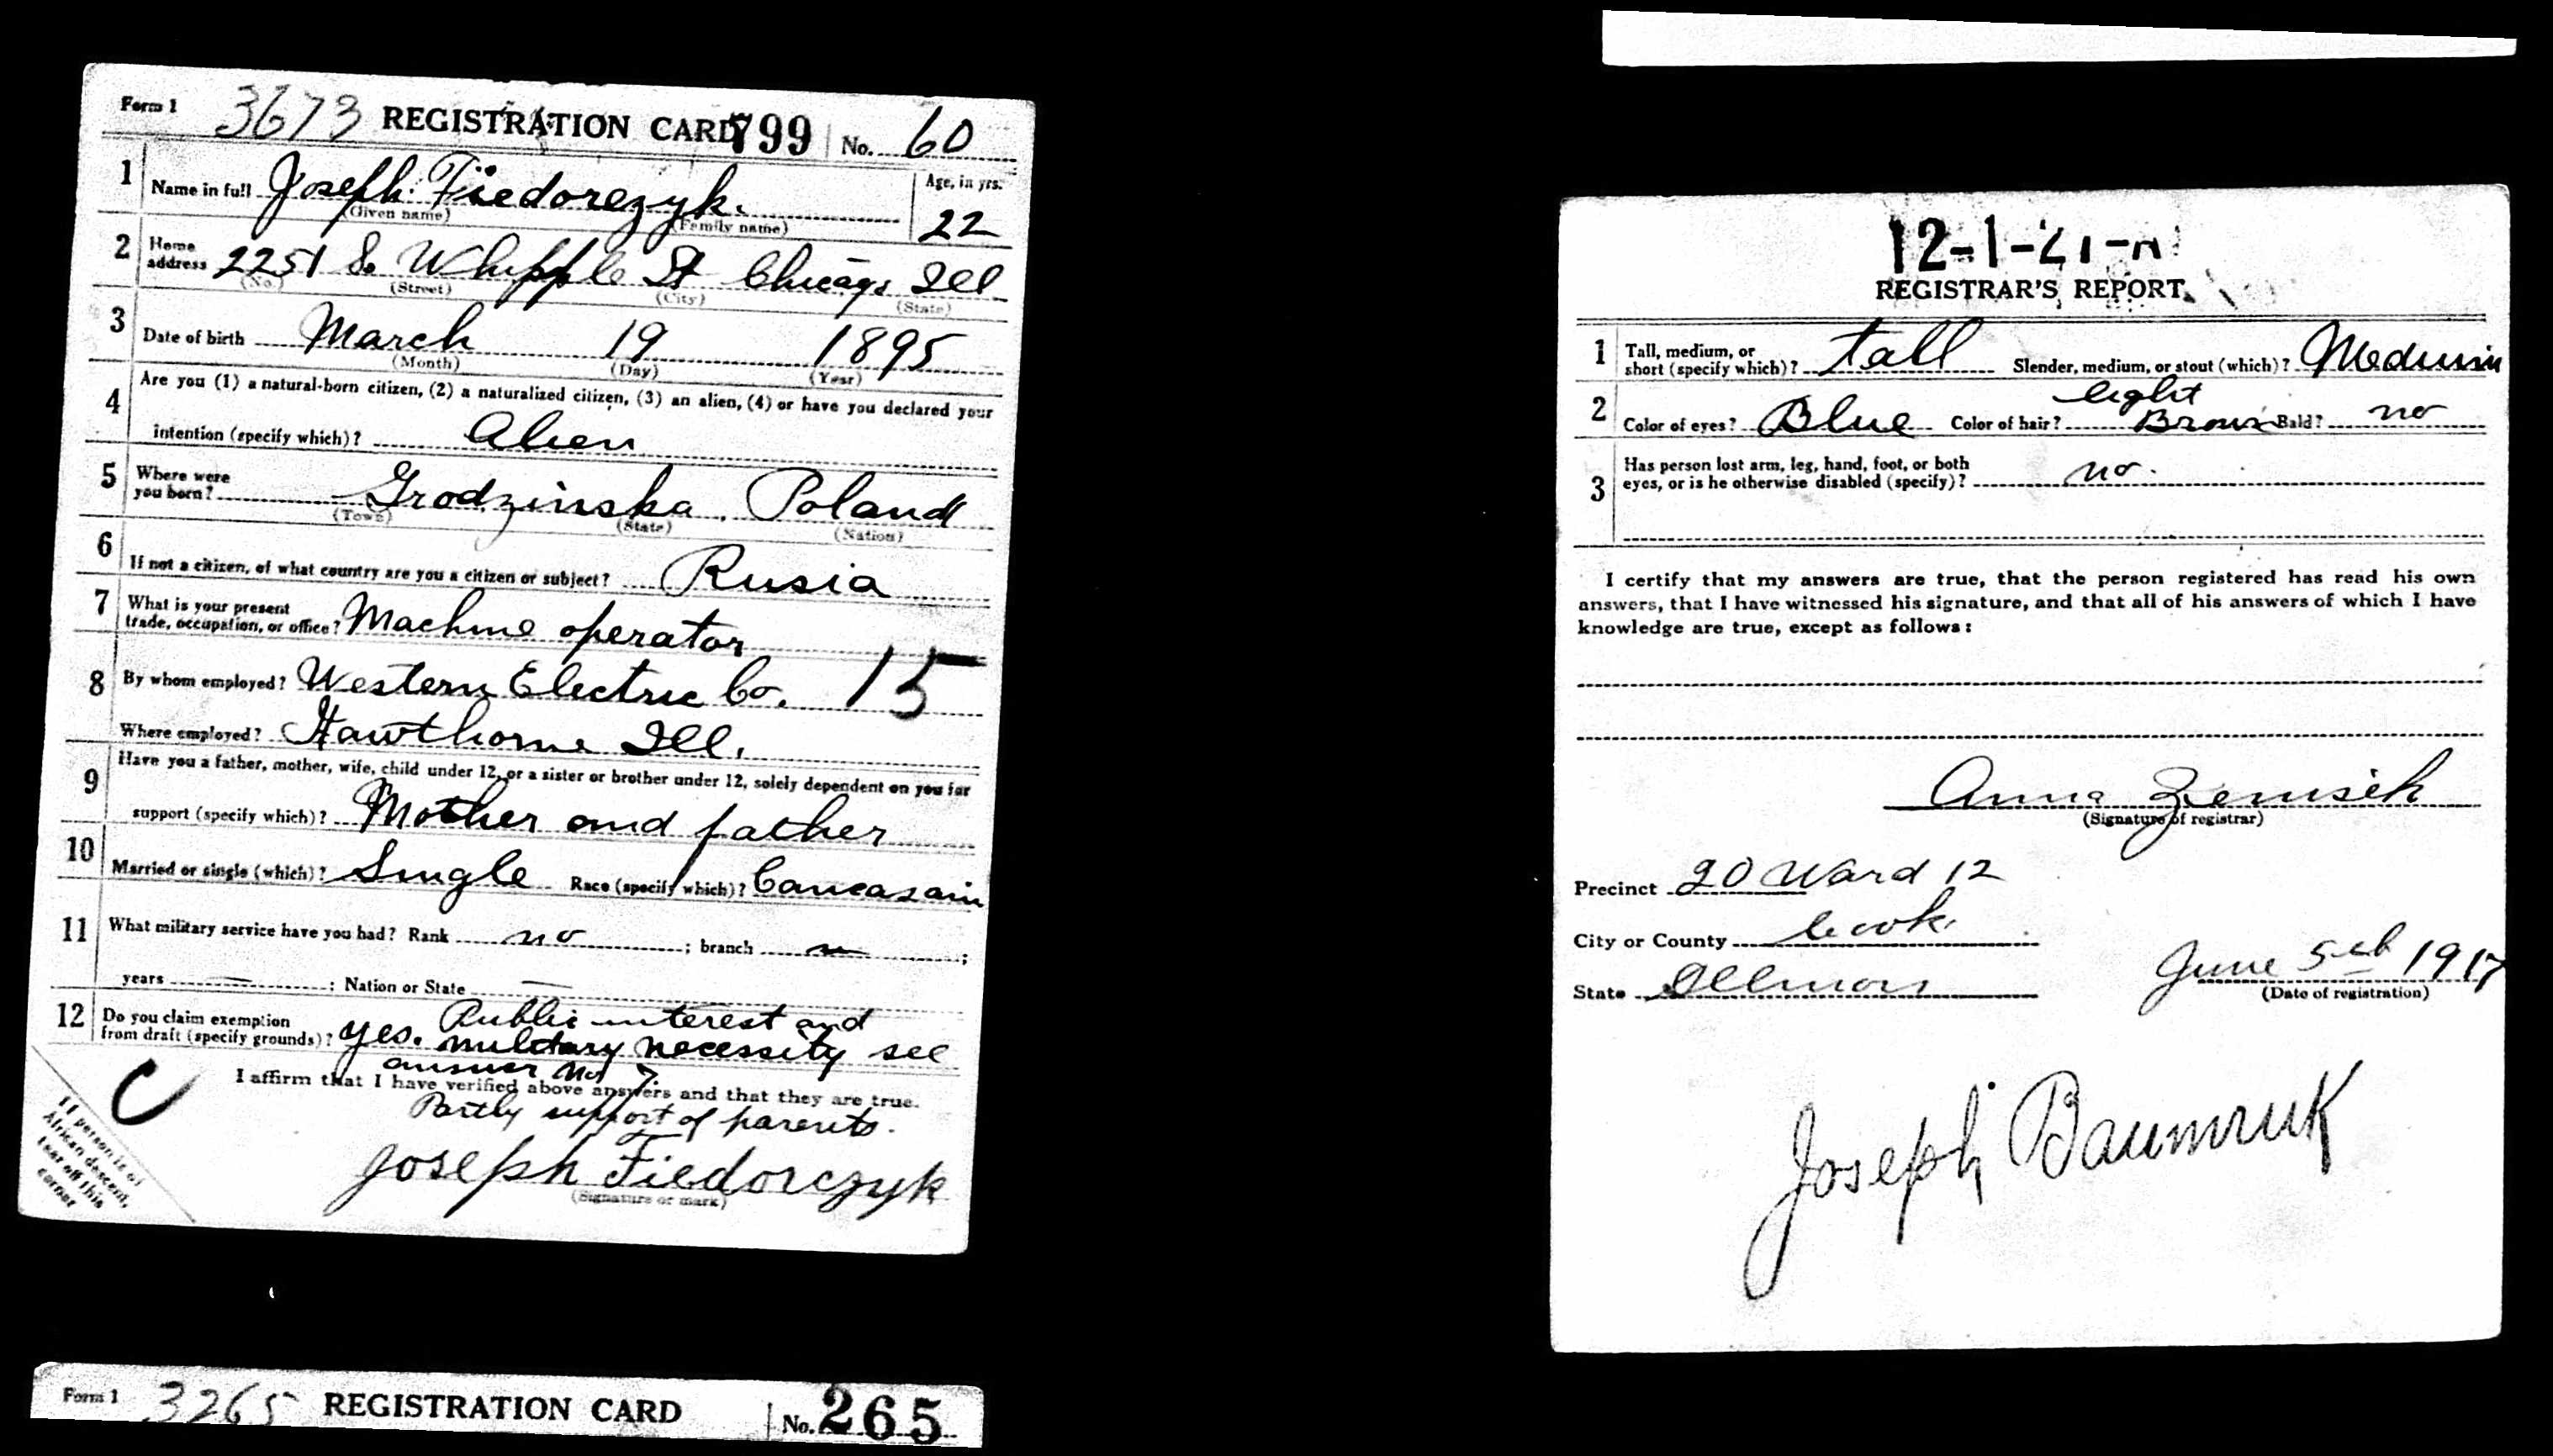 Form 1 3673 REGISTRATION CARD 799 No. 60
1 Name in full Joseph Fiedorczyk. Age, in yrs.
(Given name) (Family name) 22
2 Home address 2251 So Whipple St Chicago Ill.
(No.) (Street) (City) (State)
3 Date of birth March 19 1895
(Month) (Day) (Year)
4 Are you (1) a natural-born citizen, (2) a naturalized citizen, (3) an alien, (4) or have you declared your
intention (specify which)? Alien
5 Where were you born? Grodzinska. Poland
(Town) (State) (Nation)
6 If not a citizen, of what country are you a citizen or subject? Rusia
7 What is your present trade, occupation, or office? Machine operator
8 By whom employed? Western Electric Co. 15
Where employed? Hawthorne Ill.
9 Have you a father, mother, wife, child under 12, or a sister or brother under 12, solely dependent on you for
support (specify which)? Mother and father
10 Married or single (which)? Single Race (specify which)? Caucasain
11 What military service have you had? Rank no ; branch — ;
years — ; Nation or State —
12 Do you claim exemption from draft (specify grounds)? yes. Public interest and
military necessity see
answer No 7.
I affirm that I have verified above answers and that they are true.
Partly support of parents.
Joseph Fiedorczyk
(Signature or mark)
If person is of African descent, tear off this corner
C
Form 1 3265 REGISTRATION CARD No. 265
REGISTRAR'S REPORT
1 Tall, medium, or short (specify which)? tall Slender, medium, or stout (which)? Medium
2 Color of eyes? Blue Color of hair? light Brown Bald? no
3 Has person lost arm, leg, hand, foot, or both eyes, or is he otherwise disabled (specify)? no.
I certify that my answers are true, that the person registered has read his own
answers, that I have witnessed his signature, and that all of his answers of which I have
knowledge are true, except as follows:
Anna
(Signature of registrar)
Precinct 20 Ward 12
City or County Cook
State Illinois June 5th 1917
(Date of registration)
Joseph Baumruk